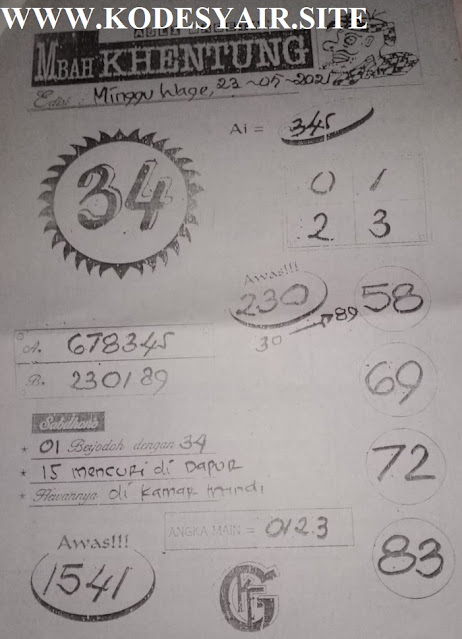 WWW.KODESYAIR.SITE
MBAH KHENTUNG
Edisi: Minggu Wage, 23-05-2021
Ai = 345
34
0 1
2 3
Awas!!!
230
30 → 89
58
A. 678345
B. 230189
69
Sabdhono
* 01 Berjodoh dengan 34
* 15 mencuri di Dapur
* Hewannya di kamar mandi
72
ANGKA MAIN = 0123
Awas!!!
1541
83